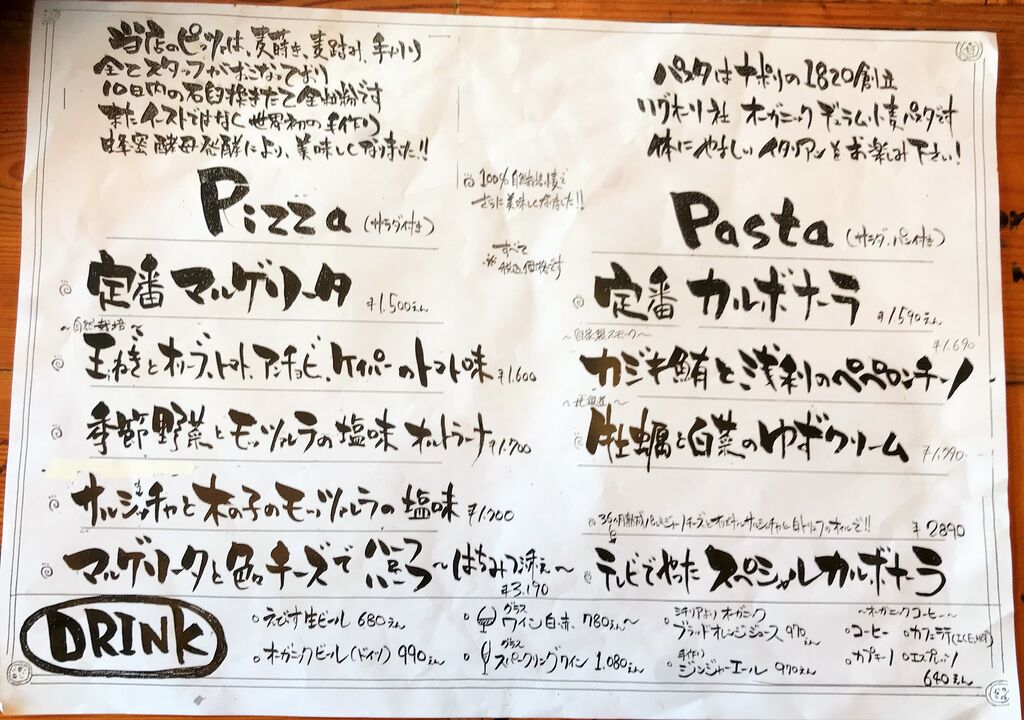 当店のピッツァは、麦蒔き、麦踏み、手刈り
全てスタッフがおこなっており
10日内の石臼挽きたて全粒粉です
またイーストではなく世界初の手作り
蜂蜜酵母発酵により、美味しくなりました!!
パスタは中部イタリアの1820創立
社 オーガニックデュラム小麦パスタです
体にやさしいイタリアンをお楽しみ下さい!
100%自然栽培小麦で
さらに美味しくなりました!!
Pizza (サラダ付き)
すべて
※税込価格です
定番 マルゲリータ ¥1,500えん
~自然栽培~
玉ねぎとオリーブ、トマト、アンチョビ、ケイパーのトマト味 ¥1,600
季節野菜とモッツァレラの塩味 オルトラーナ ¥1,700
サルシッチャと木の子のモッツァレラの塩味 ¥1,700
マルゲリータと色んなチーズで ~はちみつ添え~
¥3,190
Pasta (サラダ、パン付き)
定番 カルボナーラ ¥1590えん
~自家製スモーク~
¥1,690
カジキ鮪と浅利のペペロンチーノ
牡蠣と白菜のゆずクリーム ¥1,790
36ヶ月熟成パルミジャーノチーズとオリジナルサルシッチャと白トリュフのオイルで!!
¥2890
テレビでやった スペシャルカルボナーラ
DRINK
えびす生ビール 680えん
オーガニックビール(ドイツ) 990えん
グラス
ワイン白・赤 780えん~
グラス
スパークリングワイン 1,080えん
シチリアより オーガニック
ブラッドオレンジジュース 970えん
手作り
ジンジャーエール 970えん
~オーガニックコーヒー~
コーヒー カフェラテ(ICE, HOT)
カプチーノ エスプレッソ
640えん